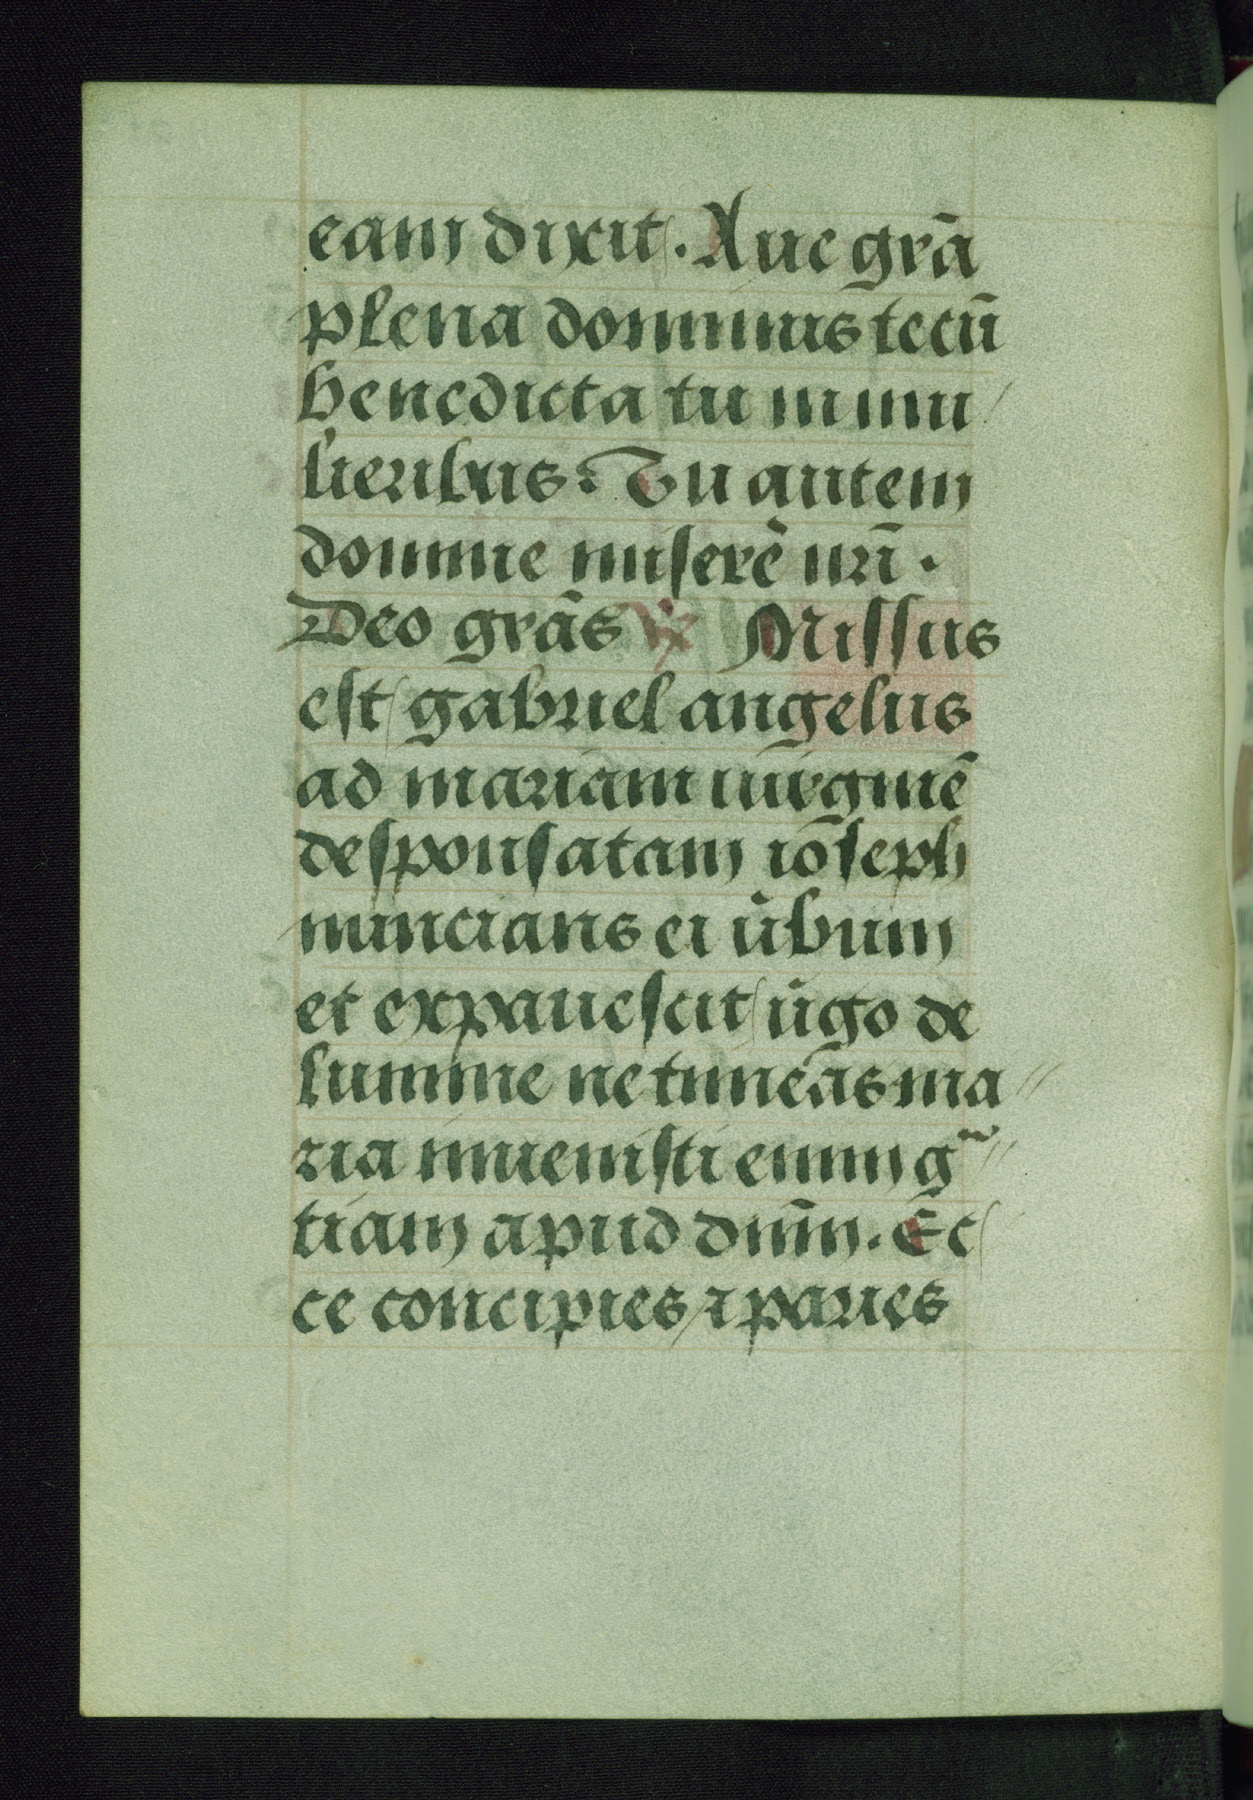 eam dixit. Aue grā
plena dominus tecū
benedicta tu in mu
lieribus. Tu autem
domine miserē nr̄i.
Deo grās Missus
est gabriel angelus
ad mariam uirginē
desponsatam iōseph
nuncians ei ūbum
et expauescit ūgo de
lumine ne timēas ma
ria inuenisti enim g̃
tiam apud dn̄m. Ec
ce concipies ⁊ paries